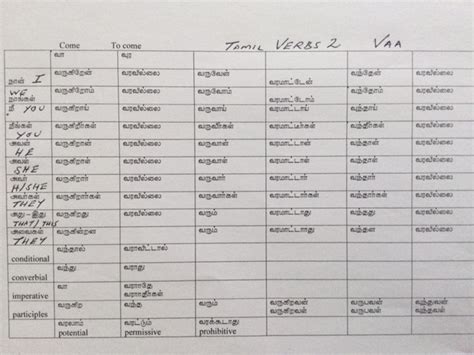 Come To come TAMIL VERBS 2 VAA
வா வர
நான் I வருகிறேன் வரவில்லை வருவேன் வரமாட்டேன் வந்தேன் வரவில்லை
WE நாங்கள் வருகிறோம் வரவில்லை வருவோம் வரமாட்டோம் வந்தோம் வரவில்லை
நீ YOU வருகிறாய் வரவில்லை வருவாய் வரமாட்டாய் வந்தாய் வரவில்லை
நீங்கள் YOU வருகிறீர்கள் வரவில்லை வருவீர்கள் வரமாட்டீர்கள் வந்தீர்கள் வரவில்லை
அவன் HE வருகிறான் வரவில்லை வருவான் வரமாட்டான் வந்தான் வரவில்லை
அவள் SHE வருகிறாள் வரவில்லை வருவாள் வரமாட்டாள் வந்தாள் வரவில்லை
அவர் H/SHE வருகிறார் வரவில்லை வருவார் வரமாட்டார் வந்தார் வரவில்லை
அவர்கள் THEY வருகிறார்கள் வரவில்லை வருவார்கள் வரமாட்டார்கள் வந்தார்கள் வரவில்லை
அது-இது THAT/THIS வருகிறது வரவில்லை வரும் வரமாட்டாது வந்தது வரவில்லை
அவைகள் THEY வருகின்றன வரவில்லை வரும் வரமாட்டாது வந்தன வரவில்லை
conditional வந்தால் வராவிட்டால்
converbial வந்து வராது
imperative வா வராதே வராதீர்கள்
participles வருகிற வந்த வரும் வருகிறவன் வருகிறவள் வருபவன் வருபவள் வந்தவன் வந்தவள்
வரலாம் வரட்டும் வரக்கூடாது
potential permissive prohibitive